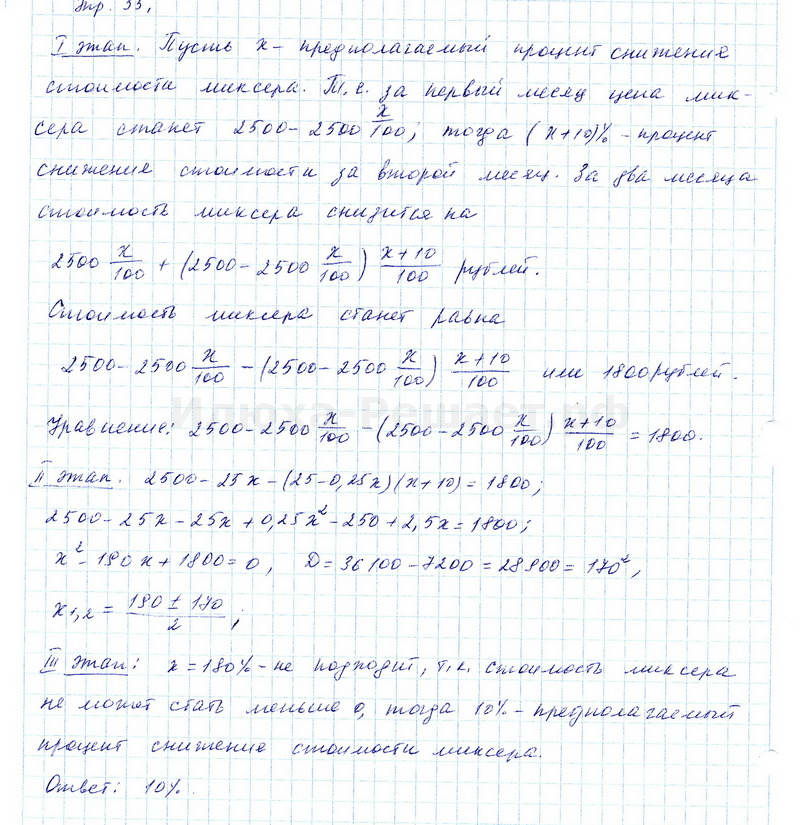 Упр. 33,
I этап. Пусть x - предполагаемый процент снижение
стоимости миксера. Т.е. за первый месяц цена мик-
сера станет 2500 - 2500 x/100; тогда (x+10)% - процент
снижение стоимости за второй месяц. За два месяца
стоимость миксера снизится на
2500 x/100 + (2500 - 2500 x/100) x+10/100 рублей.
Стоимость миксера станет равна
2500 - 2500 x/100 - (2500 - 2500 x/100) x+10/100 или 1800 рублей.
Уравнение: 2500 - 2500 x/100 - (2500 - 2500 x/100) x+10/100 = 1800.
II этап. 2500 - 25x - (25 - 0,25x)(x+10) = 1800;
2500 - 25x - 25x + 0,25x² - 250 + 2,5x = 1800;
x² - 190x + 1800 = 0, D = 36100 - 7200 = 28900 = 170²,
x₁,₂ = 190 ± 170 / 2;
III этап: x = 180% - не подходит, т.к. стоимость миксера
не может стать меньше 0, тогда 10% - предполагаемый
процент снижение стоимости миксера.
Ответ: 10%.